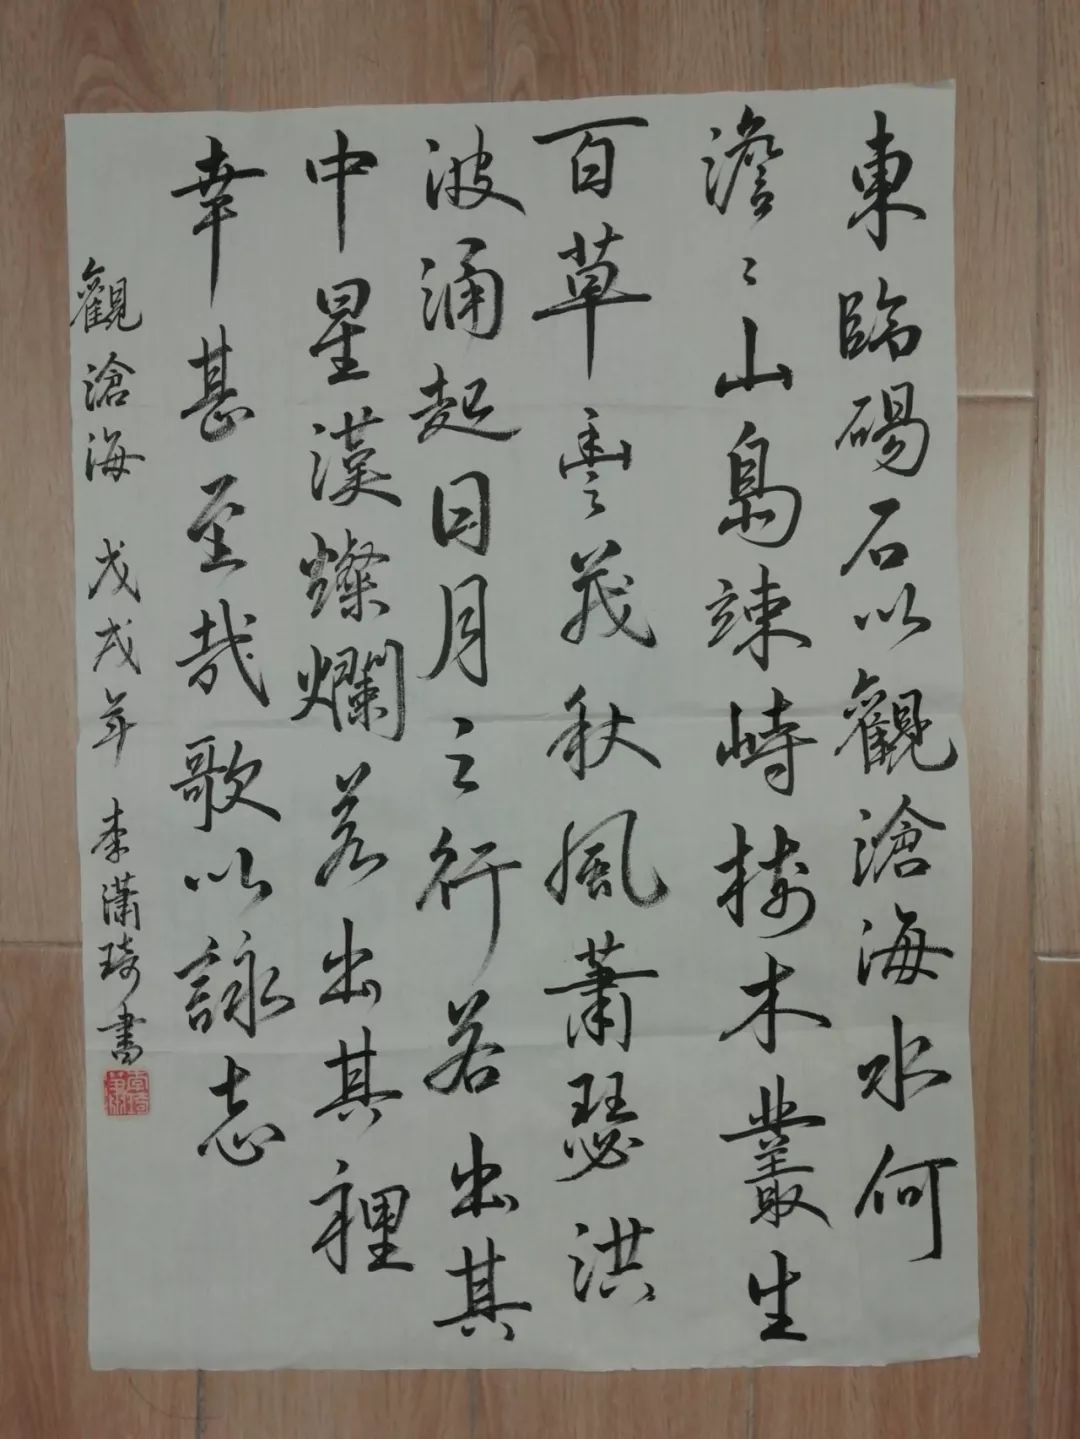 東臨碣石以觀滄海水何
澹〻山島竦峙樹木叢生
百草豐茂秋風蕭瑟洪
波涌起日月之行若出其
中星漢燦爛若出其裡
幸甚至哉歌以詠志
觀滄海 戊戌年 李瀟琦書